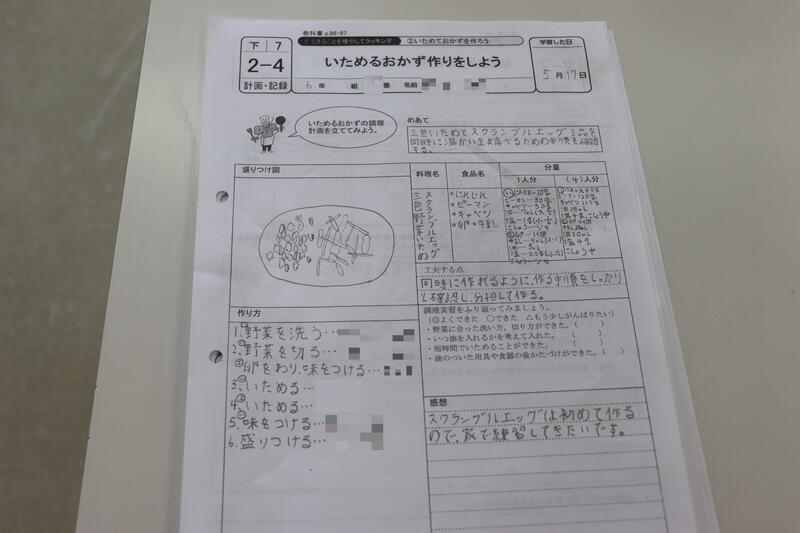 教科書 p.86-87
7 できることを増やしてクッキング
②いためておかずを作ろう
下 7
2-4
計画・記録
いためるおかず作りをしよう
学習した日
5月17日
6年 組 番 名前
いためるおかずの調理
計画を立ててみよう。
めあて
三色いためとスクランブルエッグ2品を
同時に温かいまま食べるための手順を確認
する。
盛りつけ図
料理名
食品名
分量
1人分
(4)人分
スクランブルエッグ
三色野菜いため
・にんじん
・ピーマン
・キャベツ
・卵・牛乳
にんじん…20g
ピーマン…30g
キャベツ…50g
工夫する点
同時に作れるように、作る手順をしっかり
と確認し、分担して作る。
調理実習をふり返ってみましょう。
(◎よくできた ○できた △もう少しがんばりたい)
・野菜に合った洗い方,切り方ができた。( )
・いつ油を入れるかを考えて入れた。( )
・短時間でいためることができた。( )
・油のついた用具や食器の後かたづけができた。( )
作り方
1、野菜を洗う…
2、野菜を切る…
卵をわり、味をつける…
3、いためる…
4、いためる…
5、味をつける…
6、盛りつける…
感想
スクランブルエッグは初めて作る
ので、家で練習してきたいです。